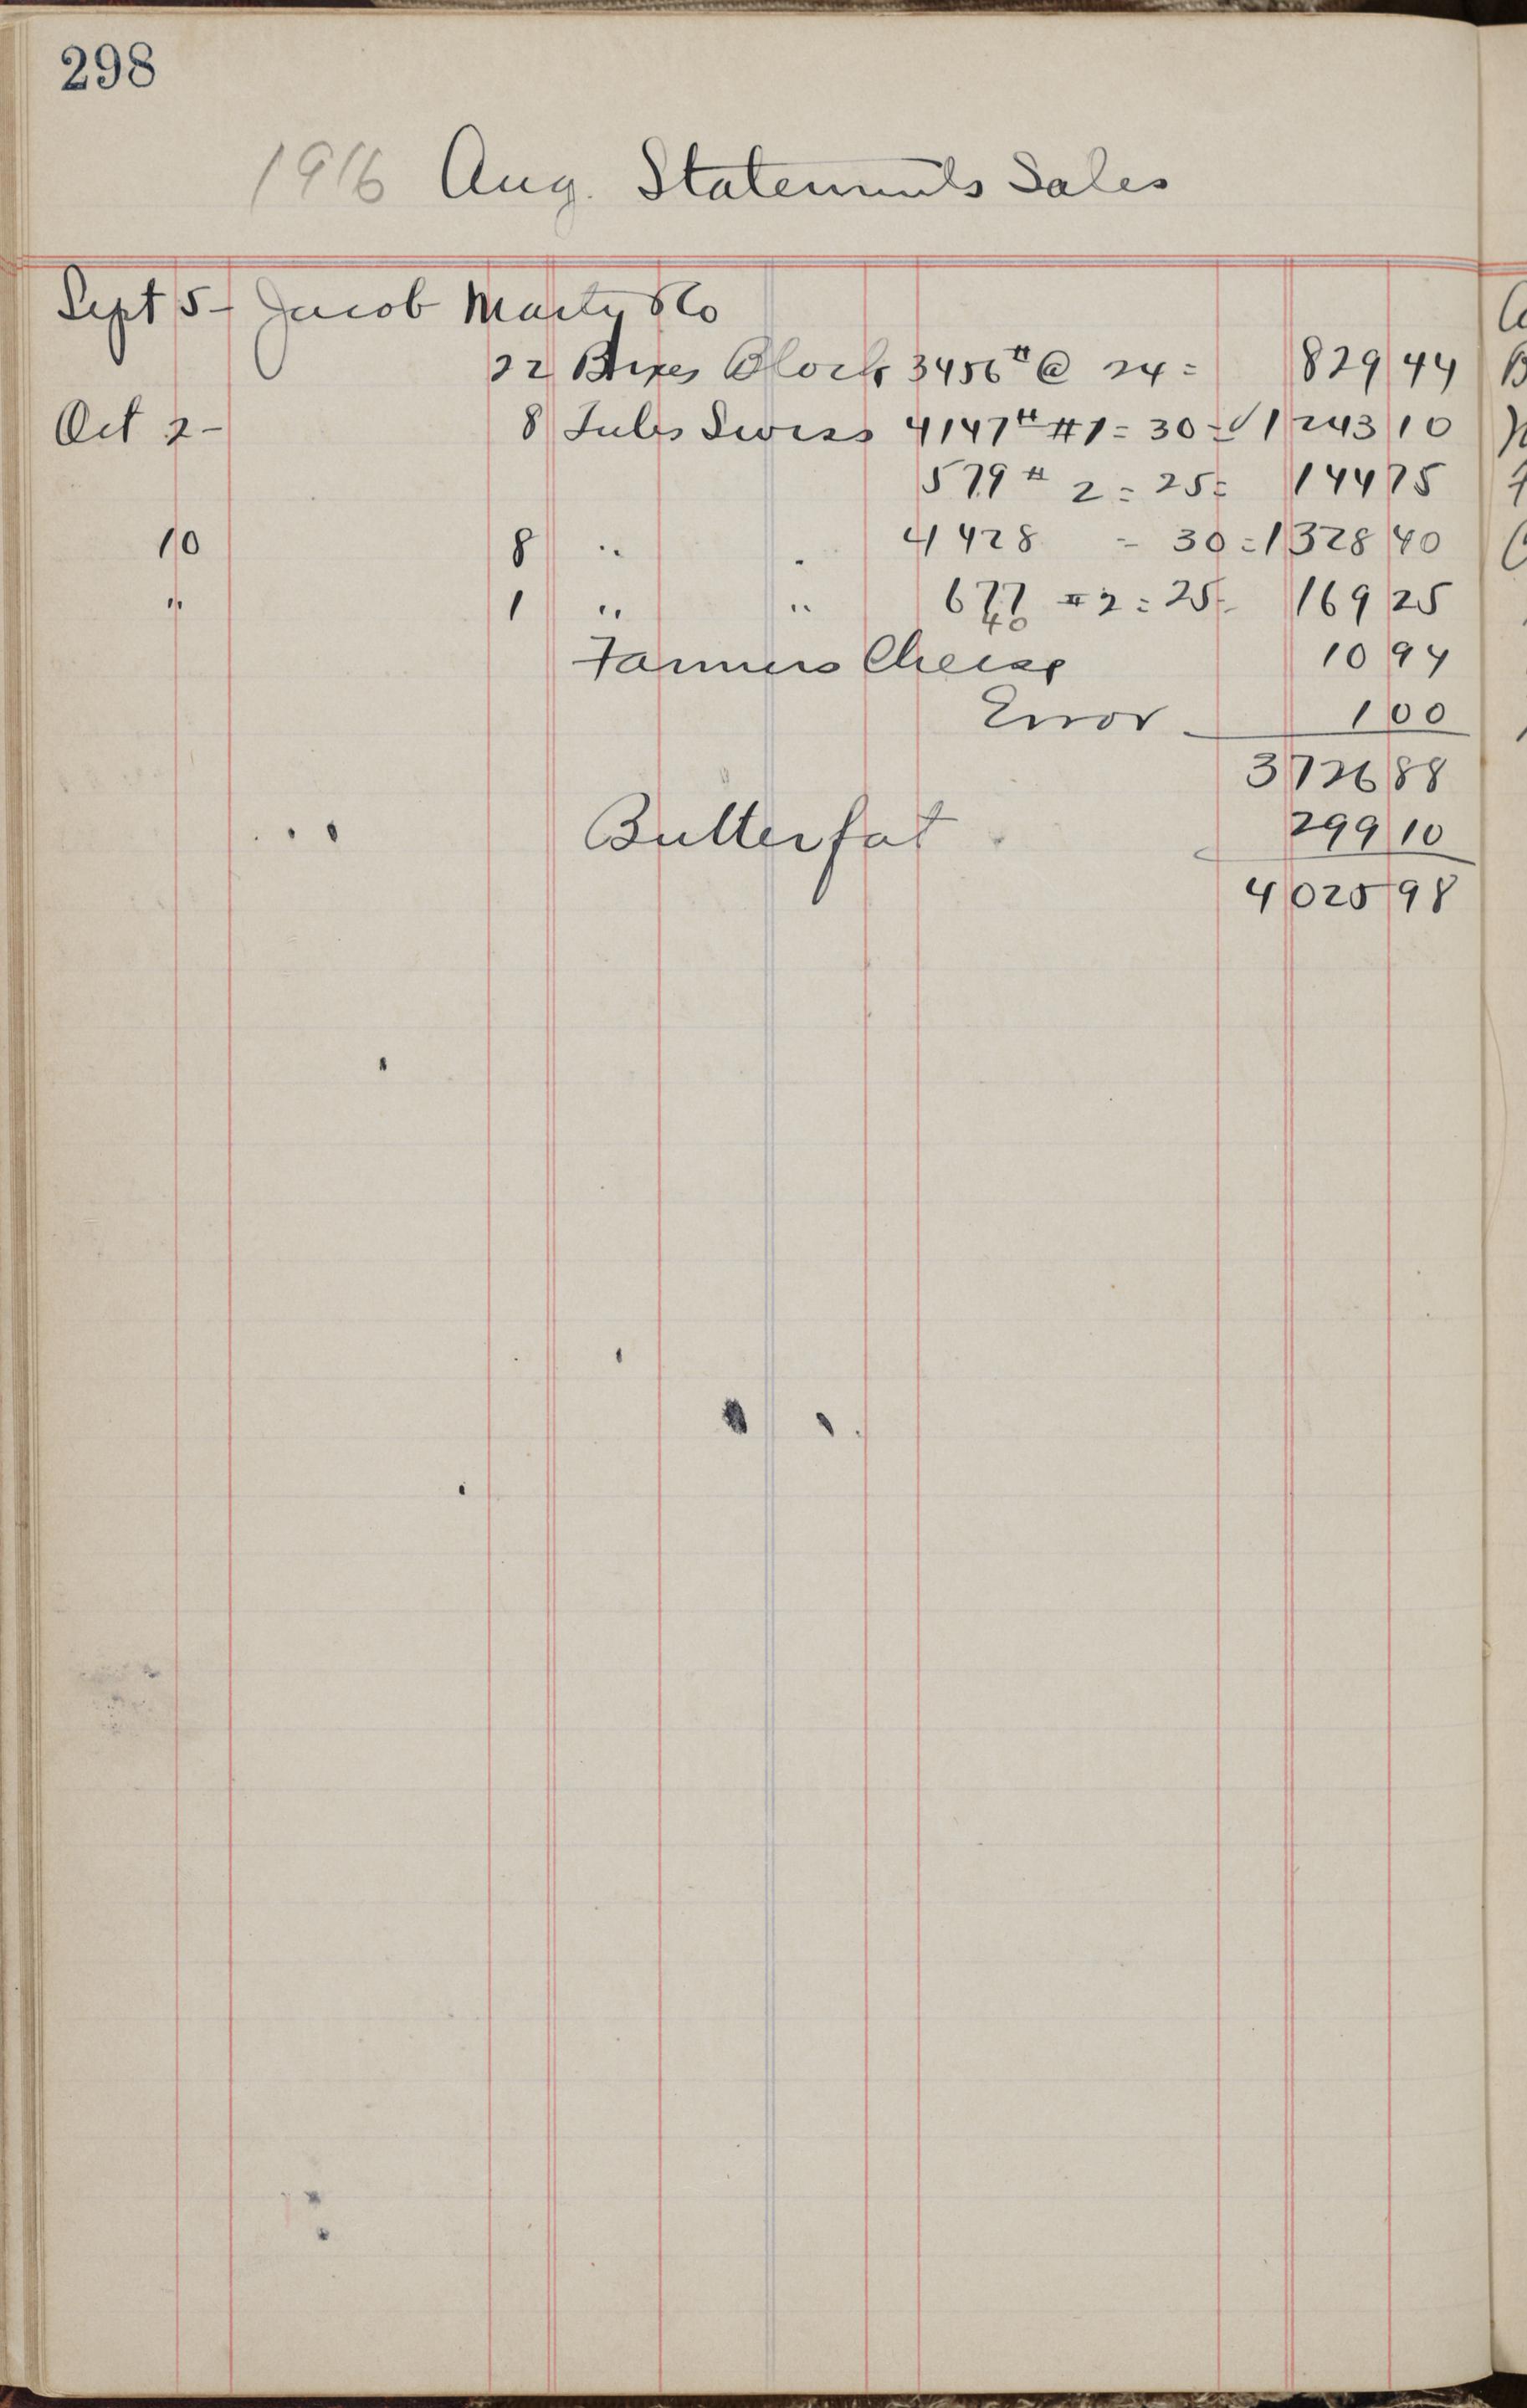 298
1916 Aug. Statements Sales
Sept 5 - Jacob Marty & Co
22 Boxes Block 3456 # @ 24 = 829 44
Oct 2 - 8 Tubs Swiss 4147 # #1 = 30 = ✓ 1243 10
579 # 2 = 25 = 144 75
10 8 " " 4428 - 30 = 1328 40
" 1 " " 677 #2 = 25 - 169 25
40
Farmers Cheese 10 94
Error 1 00
3726 88
Butterfat 299 10
4025 98